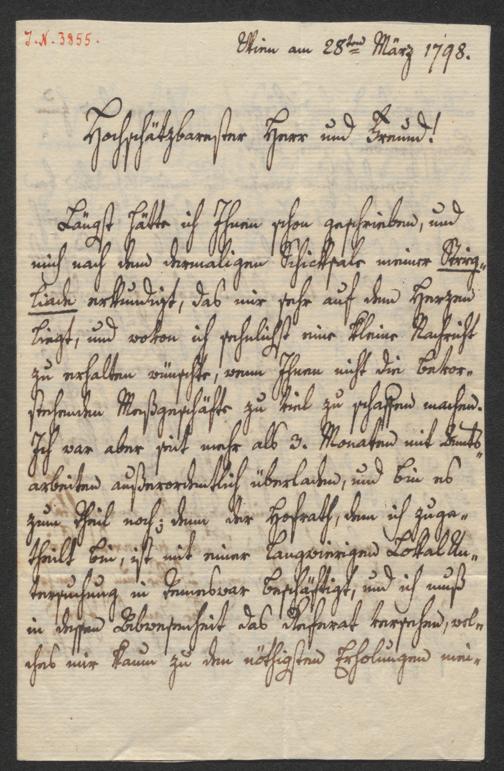 J.N. 3855.
Wien am 28ten März 1798.
Hochschätzbarester Herr und Freund!
Längst hätte ich Ihnen schon geschrieben, und
mich nach dem dermaligen Schicksale meiner Strieg-
liade erkundigt, das mir sehr auf dem Herzen
liegt, und wovon ich sehnlichst eine kleine Nachricht
zu erhalten wünschte, wenn Ihnen nicht die bevor-
stehenden Meßgeschäfte zu viel zu schaffen machen.
Ich war aber seit mehr als 3. Monaten mit Amts-
arbeiten außerordentlich überladen, und bin es
zum Theil noch; denn der Hofrath, dem ich zuge-
theilt bin, ist mit einer langwierigen LokalUn-
tersuchung in Temeswar beschäftigt, und ich muß
in dessen Abwesenheit das Referat versehen, wel-
ches mir kaum zu den nöthigsten Erholungen mei-